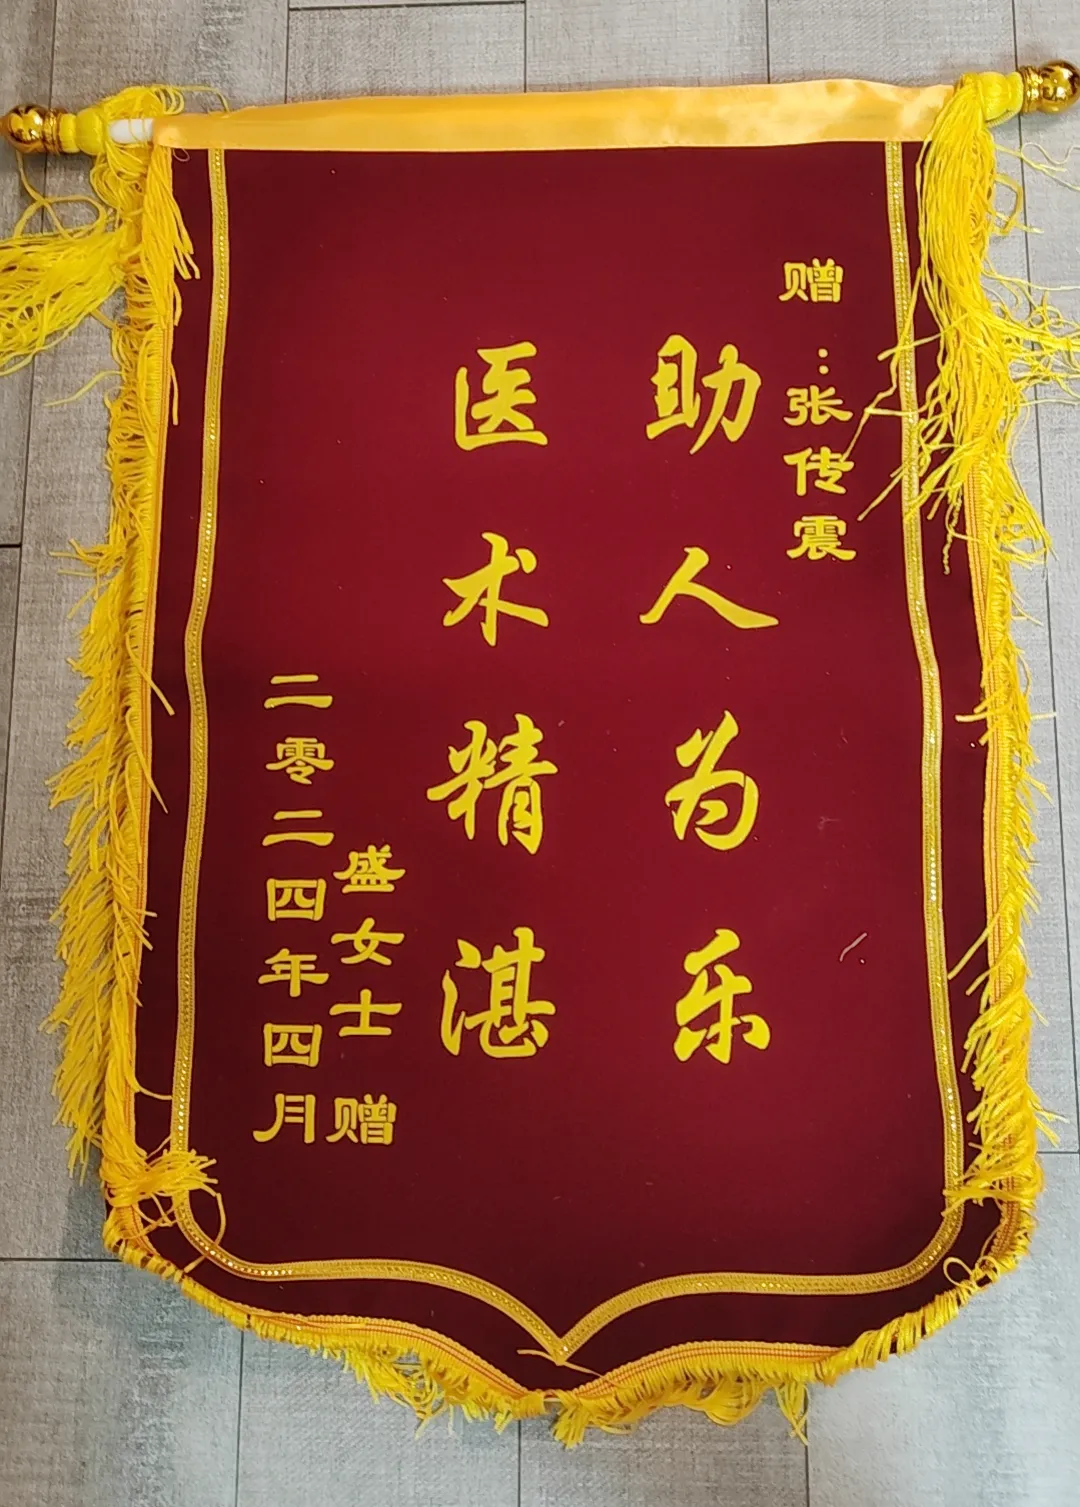 赠:张传震
助人为乐
医术精湛
盛女士 赠
二零二四年四月